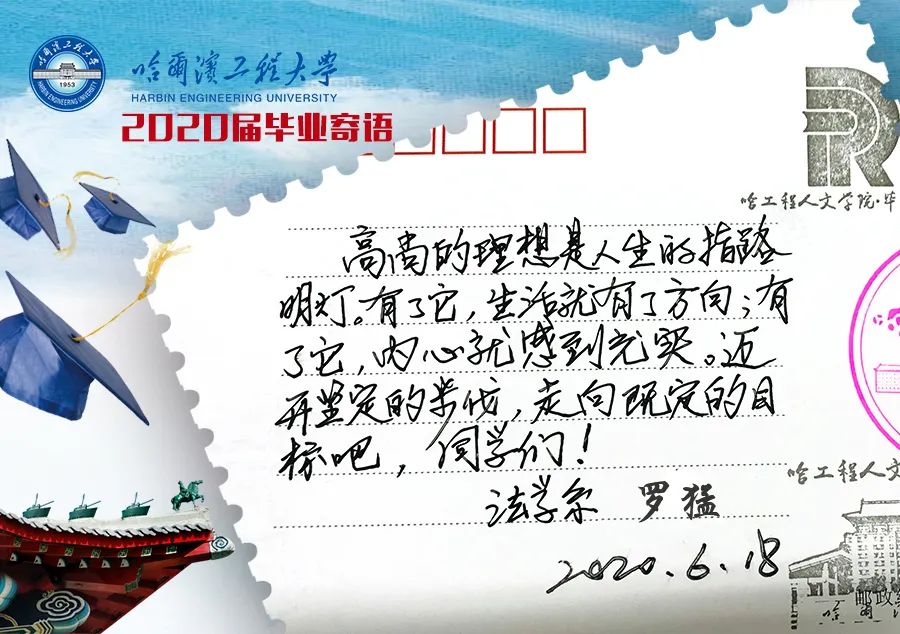 哈尔滨工程大学
1953
HARBIN ENGINEERING UNIVERSITY
哈爾濱工程大學
HARBIN ENGINEERING UNIVERSITY
2020届毕业寄语
哈工程人文学院·毕
高尚的理想是人生的指路
明灯。有了它，生活就有了方向；有
了它，内心就感到充实。迈
开坚定的步伐，走向既定的目
标吧，同学们！
法学系 罗猛
2020.6.18
哈工程人文
邮政